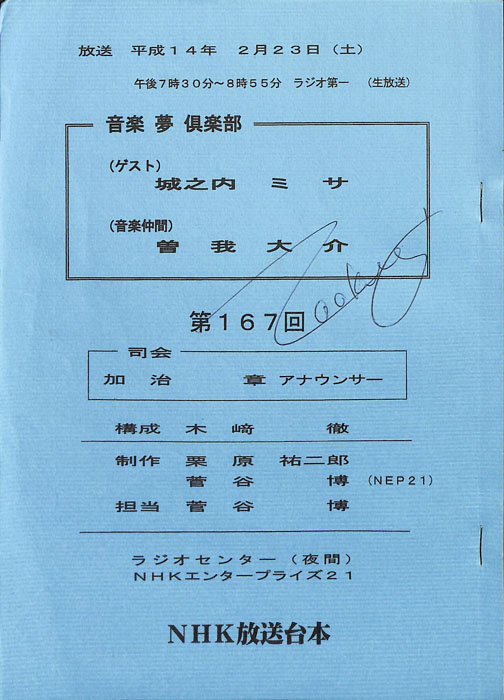 放送 平成14年 2月23日(土)
午後7時30分~8時55分 ラジオ第一 (生放送)
音楽 夢 倶楽部
(ゲスト)
城之内 ミ サ
(音楽仲間)
曽 我 大 介
第167回
司会
加 治 章 アナウンサー
構成 木 﨑 徹
制作 栗 原 祐二郎
菅 谷 博 (NEP21)
担当 菅 谷 博
ラジオセンター(夜間)
NHKエンタープライズ21
NHK放送台本